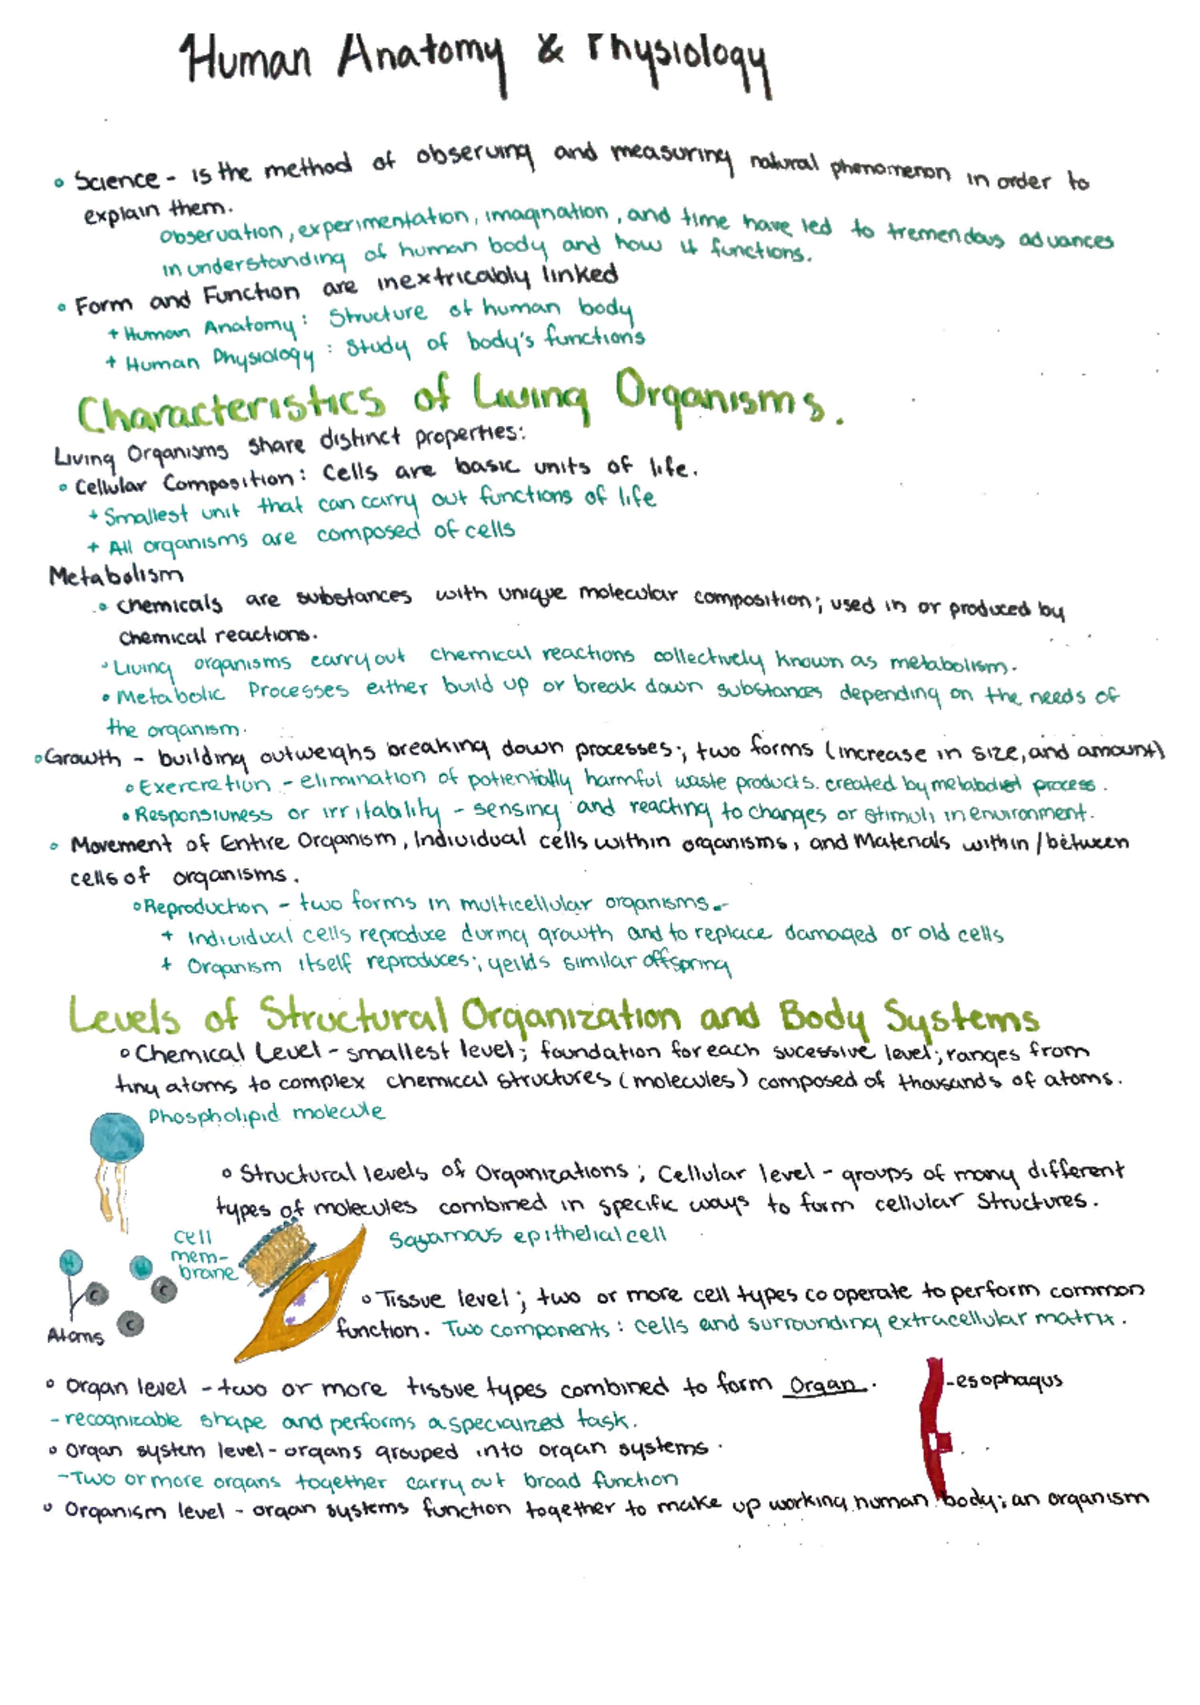 Human Anatomy & Physiology
Science - is the method of observing and measuring natural phenomenon in order to
explain them.
Observation, experimentation, imagination, and time have led to tremendous advances
in understanding of human body and how it functions.
Form and Function are inextricably linked
+ Human Anatomy: Structure of human body
+ Human Physiology: Study of body's functions
Characteristics of Living Organisms.
Living Organisms share distinct properties:
Cellular Composition: Cells are basic units of life.
+ Smallest unit that can carry out functions of life
+ All organisms are composed of cells
Metabolism
chemicals are substances with unique molecular composition; used in or produced by
chemical reactions.
Living organisms carry out chemical reactions collectively known as metabolism.
Metabolic Processes either build up or break down substances depending on the needs of
the organism.
Growth - building outweighs breaking down processes; two forms (increase in size, and amount)
Exercretion - elimination of potientally harmful waste products. created by metabolist process.
Responsivness or irritability - sensing and reacting to changes or stimuli in environment.
Movement of Entire Organism, Individual cells within organisms, and Materials within/between
cells of organisms.
Reproduction - two forms in multicellular organisms.-
+ Individual cells reproduce during growth and to replace damaged or old cells
+ Organism itself reproduces; yeilds similar offspring
Levels of Structural Organization and Body Systems
Chemical Level - smallest level; foundation for each sucessive level; ranges from
tiny atoms to complex chemical structures (molecules) composed of thousands of atoms.
Phospholipid molecule
Structural levels of Organizations; Cellular level - groups of many different
types of molecules combined in specific ways to form cellular structures.
cell
mem-
brane
Sqyamous epithelial cell
H
H
C
C
C
Atoms
Tissue level; two or more cell types cooperate to perform common
function. Two components: cells and surrounding extracellular matrix.
Organ level - two or more tissue types combined to form Organ.
-esophagus
- recognizable shape and performs a specialized task.
Organ system level - organs grouped into organ systems.
- Two or more organs together carry out broad function
Organism level - organ systems function together to make up working human body; an organism